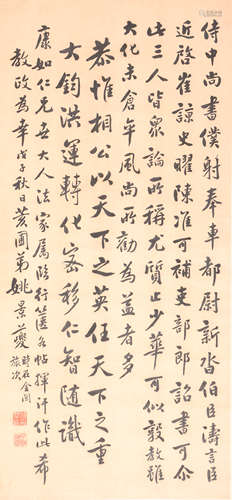 侍中尚書僕射奉車都尉新沓伯臣濤言臣
近啓崔諒史曜陳准可補吏部郎詔書可尒
此三人皆衆論所稱尤質止少華可以敦教雖
大化未倉卒風尚所勸為益者多
恭惟相公以天下之英任天下之重
大鈞洪運轉化密移仁智隨識
康如仁兄世大人法家属臨行篋名帖揮汗作此希
教政為幸戊子秋日黄圃弟姚景
時在金閶
旅次